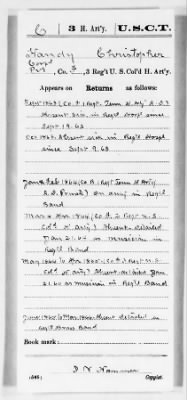 C | 3 H. Art'y. | U.S.C.T.
Handy Christopher
Corp
Pvt, Co. , 3 Reg't U. S. Col'd H. Art'y.
Appears on
Returns as follows:
Sept 1863, Co. 1 Regt Tenn H Arty A.D.
Absent sick in Regtl Hospl since
Sept 9.63
Oct 1863. Absent sick in Regtl Hospl
since Sept 9.63
Jan & Feb 1864, Co 1 Regt Tenn H Arty
on in Regtl
Band
Mar & Apr 1864, Co. 2 Regt U.S
Col'd H Arty Absent detailed
Jan 21.64 as musician in
Regtl Band
May 1864 to Apr 1865, Co 3 Regt U.S
Col'd H Arty Absent detailed Jan
21.64 as musician in Regtl Band
June 1865 to Mar 1866 Absent detailed in
Regtl Brass Band
Book mark:
(546) Copyist.